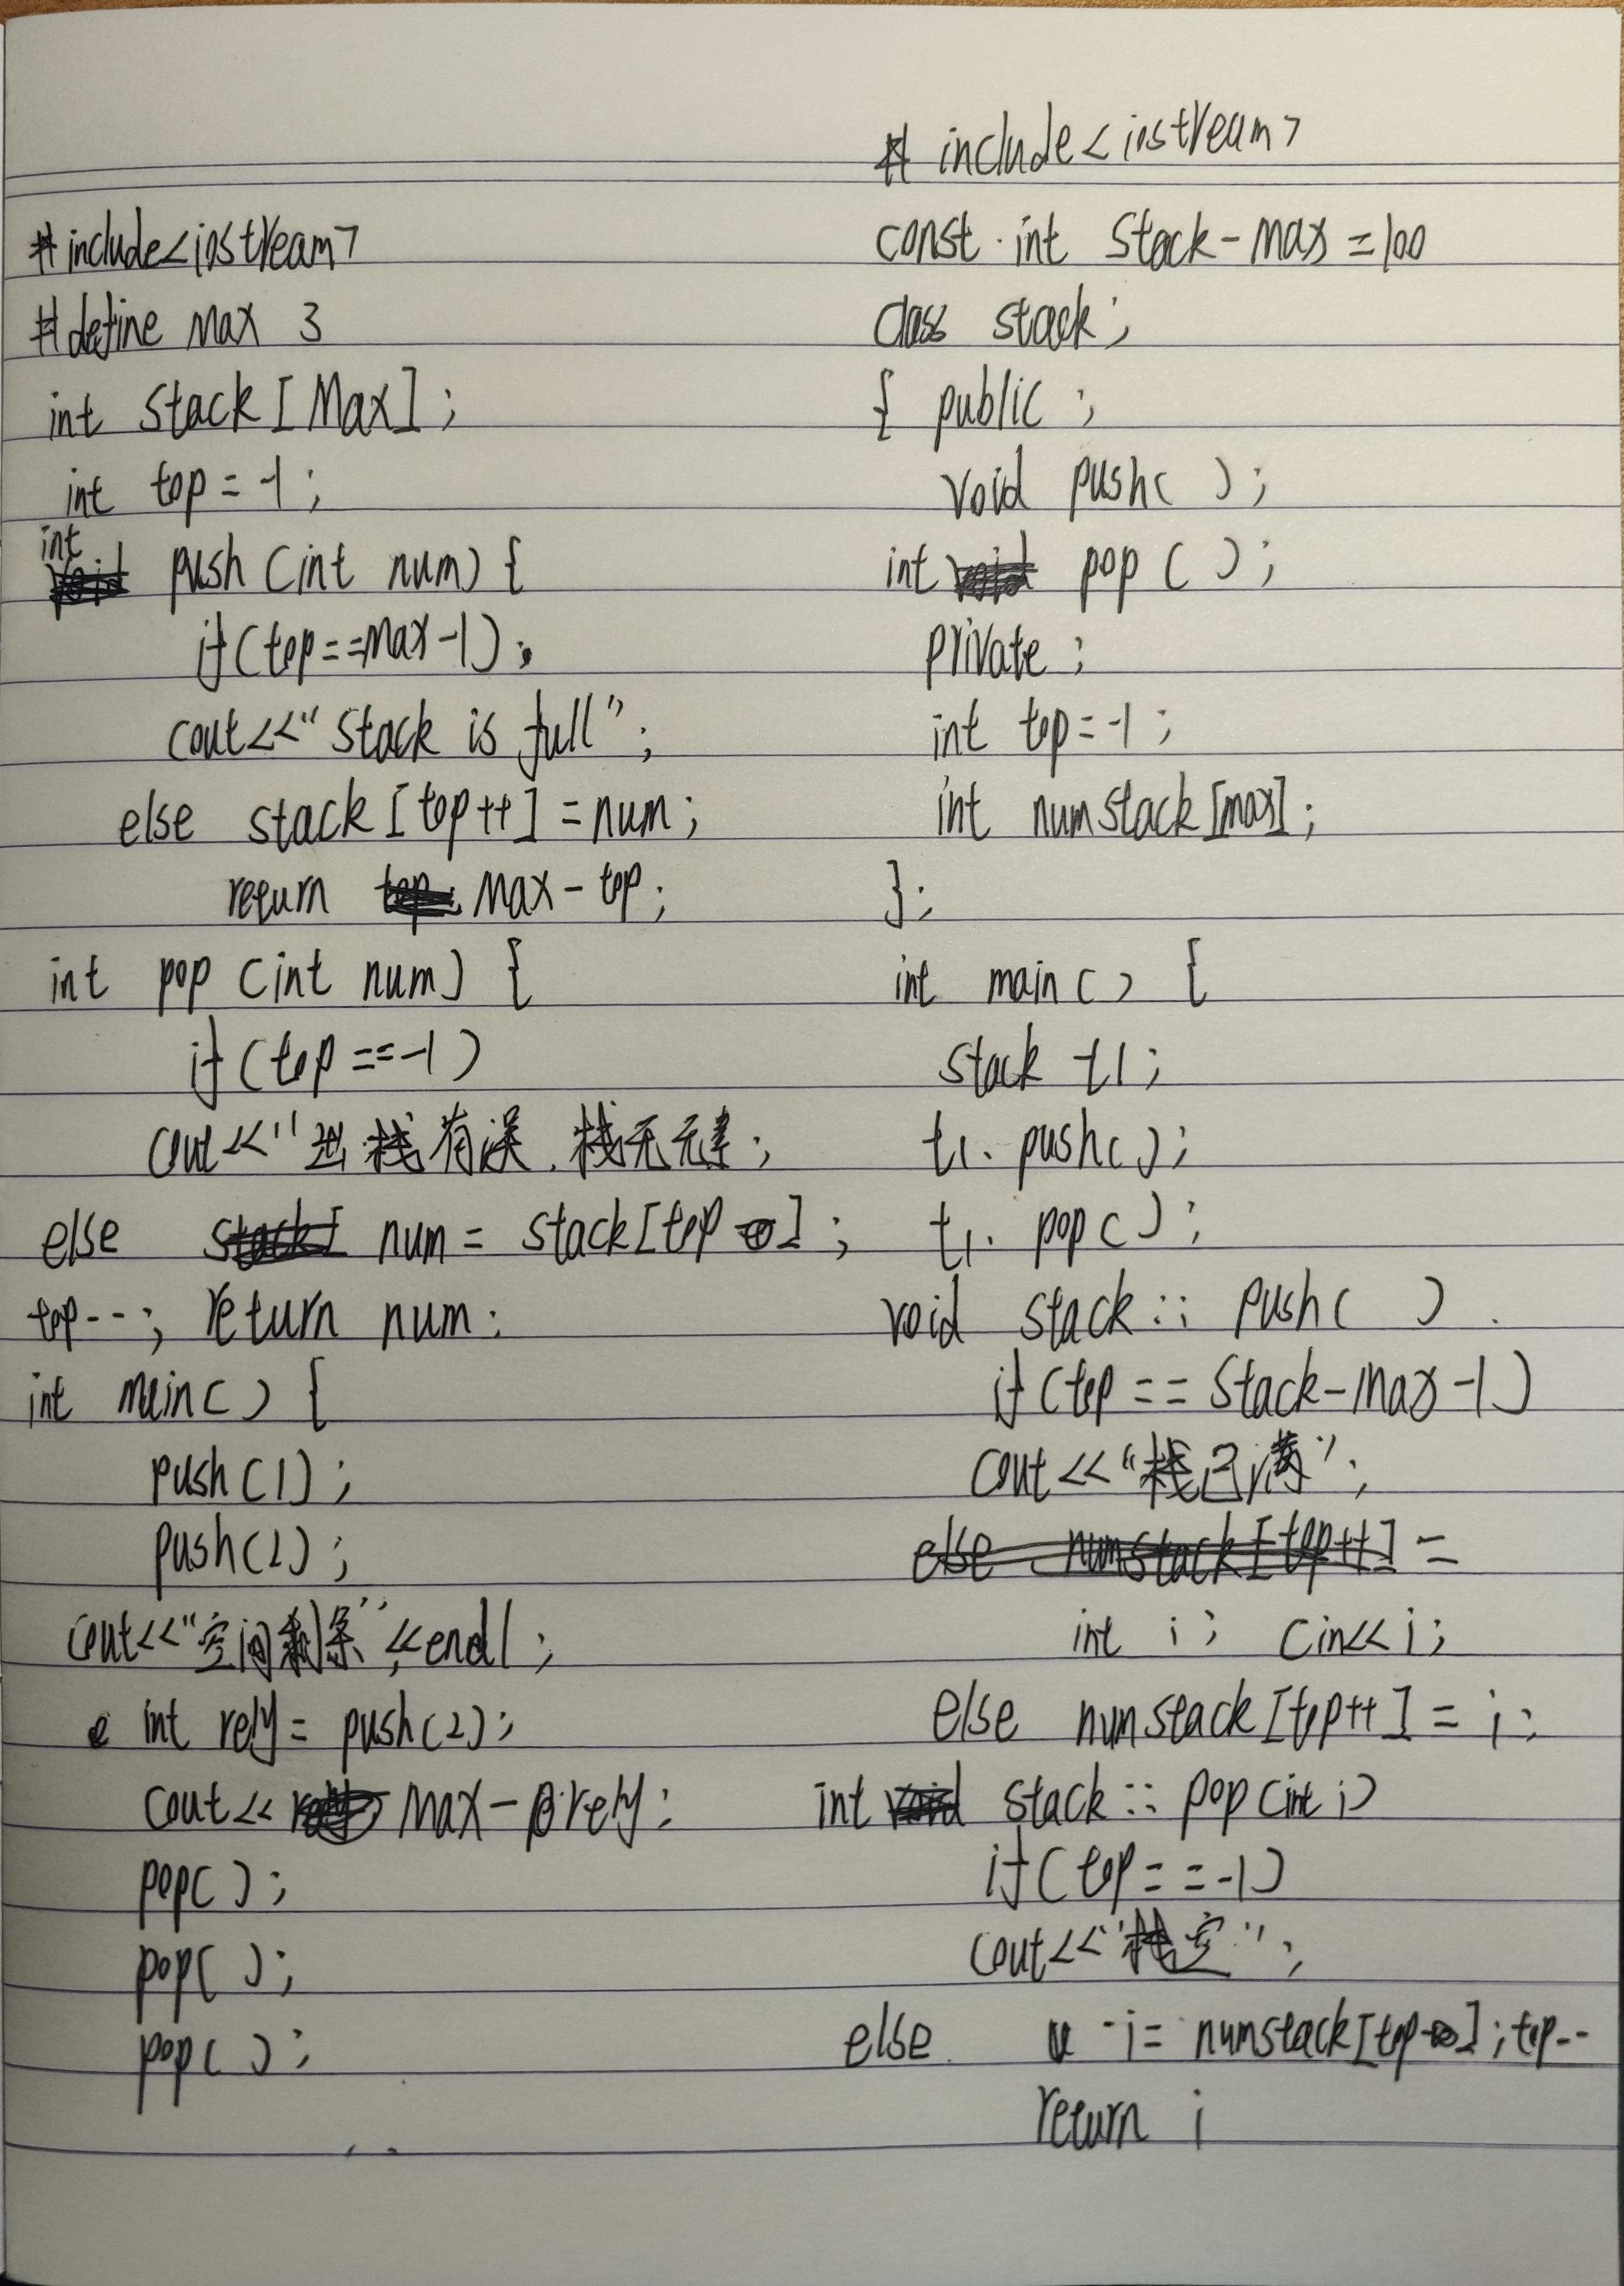 #include<iostream>
#define Max 3
int stack[Max];
int top=-1;
int push(int num){
if(top==Max-1);
cout<<"stack is full";
else stack[top++]=num;
return Max-top;
int pop(int num){
if(top==-1)
cout<<"出栈有误.栈无元素;
else num=stack[top];
top--; return num;
int main(){
push(1);
push(2);
cout<<"空间剩余"<<endl;
int rely=push(2);
cout<<Max-rely;
pop();
pop();
pop();
#include<iostream>
const int Stack-Max=100
Class stack;
{ public;
void push();
int pop();
private;
int top=-1;
int numstack[max];
};
int main(){
stack t1;
t1.push();
t1.pop();
void stack::push()
if(top==Stack-Max-1)
cout<<"栈已满";
=
int i; cin<<i;
else numstack[top++]=i;
int stack::pop(int i)
if(top==-1)
cout<<"栈空";
else i=numstack[top];top--
return i